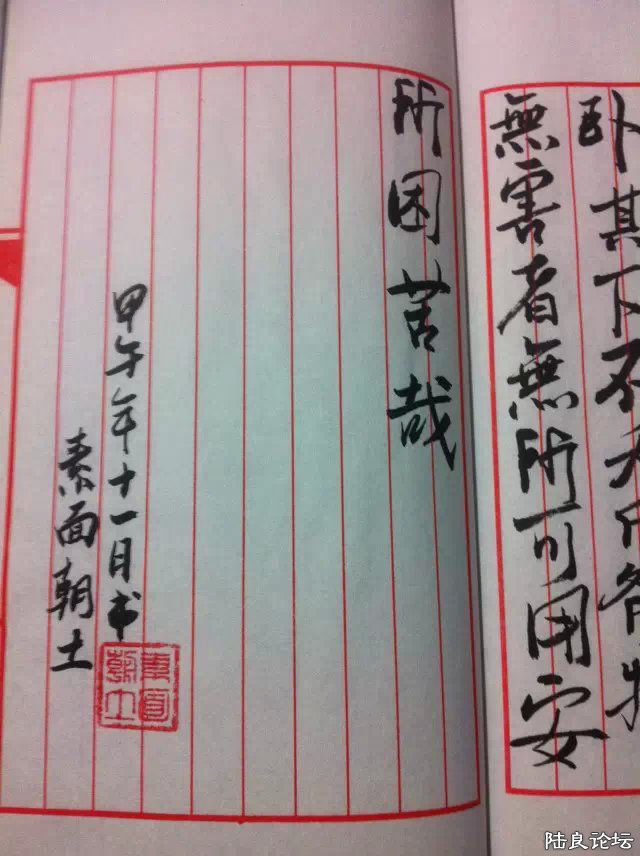 卧其下不夭斤斧物
無害者無所可用安
所困苦哉
甲午年十一月书
素面朝土
素面
朝土
陆良论坛